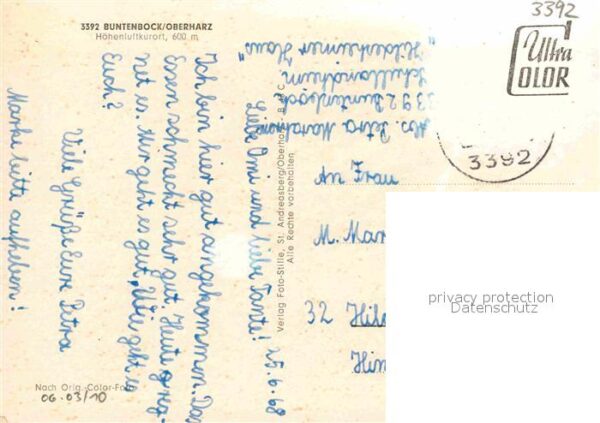 3392 BUNTENBOCK/OBERHARZ
Höhenluftkurort, 600 m
Liebe Omi und liebe Tante! 25.6.68
Ich bin hier gut angekommen. Das
Essen schmeckt sehr gut. Heute reg-
net es. Mir geht es gut. Wie geht es
Euch?
Viele Grüße Eure Petra
Marke bitte aufheben!
Nach Orig.-Color-Foto
06.03/10
Verlag Foto-Stille, St. Andreasberg/Oberharz
Alle Rechte vorbehalten
Abs. Petra
3392 Buntenbock
Schullandheim
"Hildesheimer Haus"
3392
Ultra
COLOR
3392
An Frau
M. Mar
32 Hild
Hin
privacy protection
Datenschutz